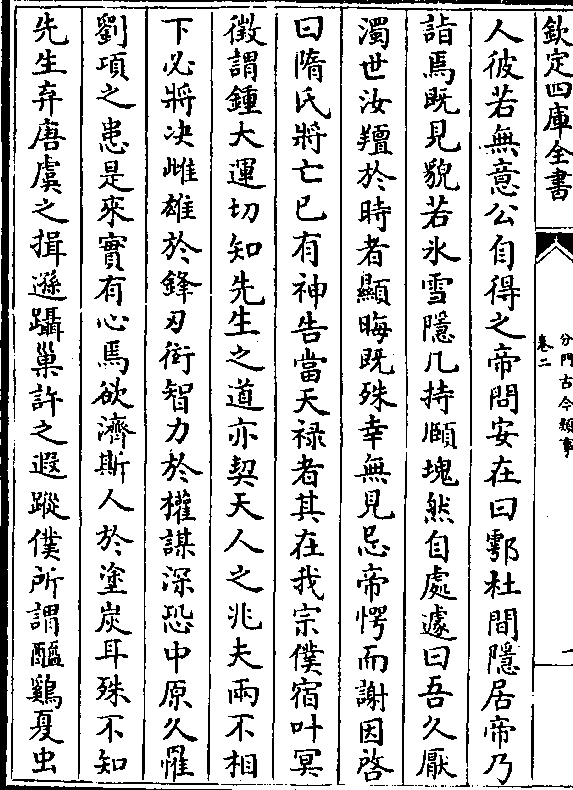 欽定四庫全書
分門古今類事
卷二
一
人彼若無意公自得之帝問安在曰鄠杜間隱居帝乃
詣焉既見貌若氷雪隱几持頤塊然自處遽曰吾久厭
濁世汝羶於時者顯晦既殊幸無見忌帝愕而謝因啓
曰隋氏將亡已有神告當天禄者其在我宗僕宿叶冥
徵謂鍾大運切知先生之道亦契天人之兆夫兩不相
下必將决雌雄於鋒刃衒智力於權謀深恐中原久罹
劉項之患是來實有心焉欲濟斯人於塗炭耳殊不知
先生弃唐虞之揖遜躡巢許之遐蹤僕所謂醯鷄夏虫